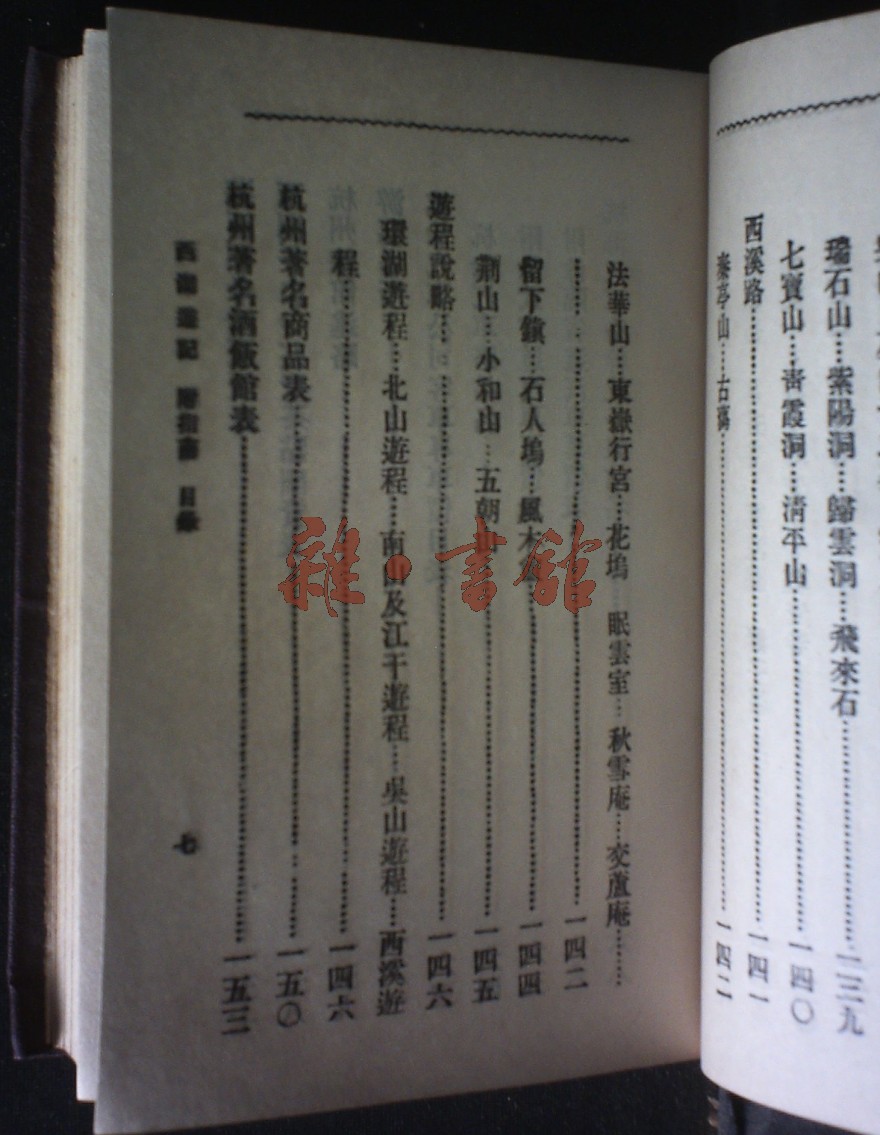 瑞石山…紫陽洞…歸雲洞…飛來石……一三九
七寶山…青霞洞…清平山……一四〇
西溪路……一四一
秦亭山…古蕩……一四二
法華山…東嶽行宮…花塢…眠雲室…秋雪庵…交蘆庵……
……一四二
留下鎮…石人塢…風木……一四四
荆山…小和山…五朝山……一四五
遊程說略……一四六
環湖遊程…北山遊程…南山及江干遊程…吳山遊程…西溪遊
程……一四六
杭州著名商品表……一五〇
杭州著名酒飯館表……一五三
西湖遊記 附指南 目錄
七
雜·書館